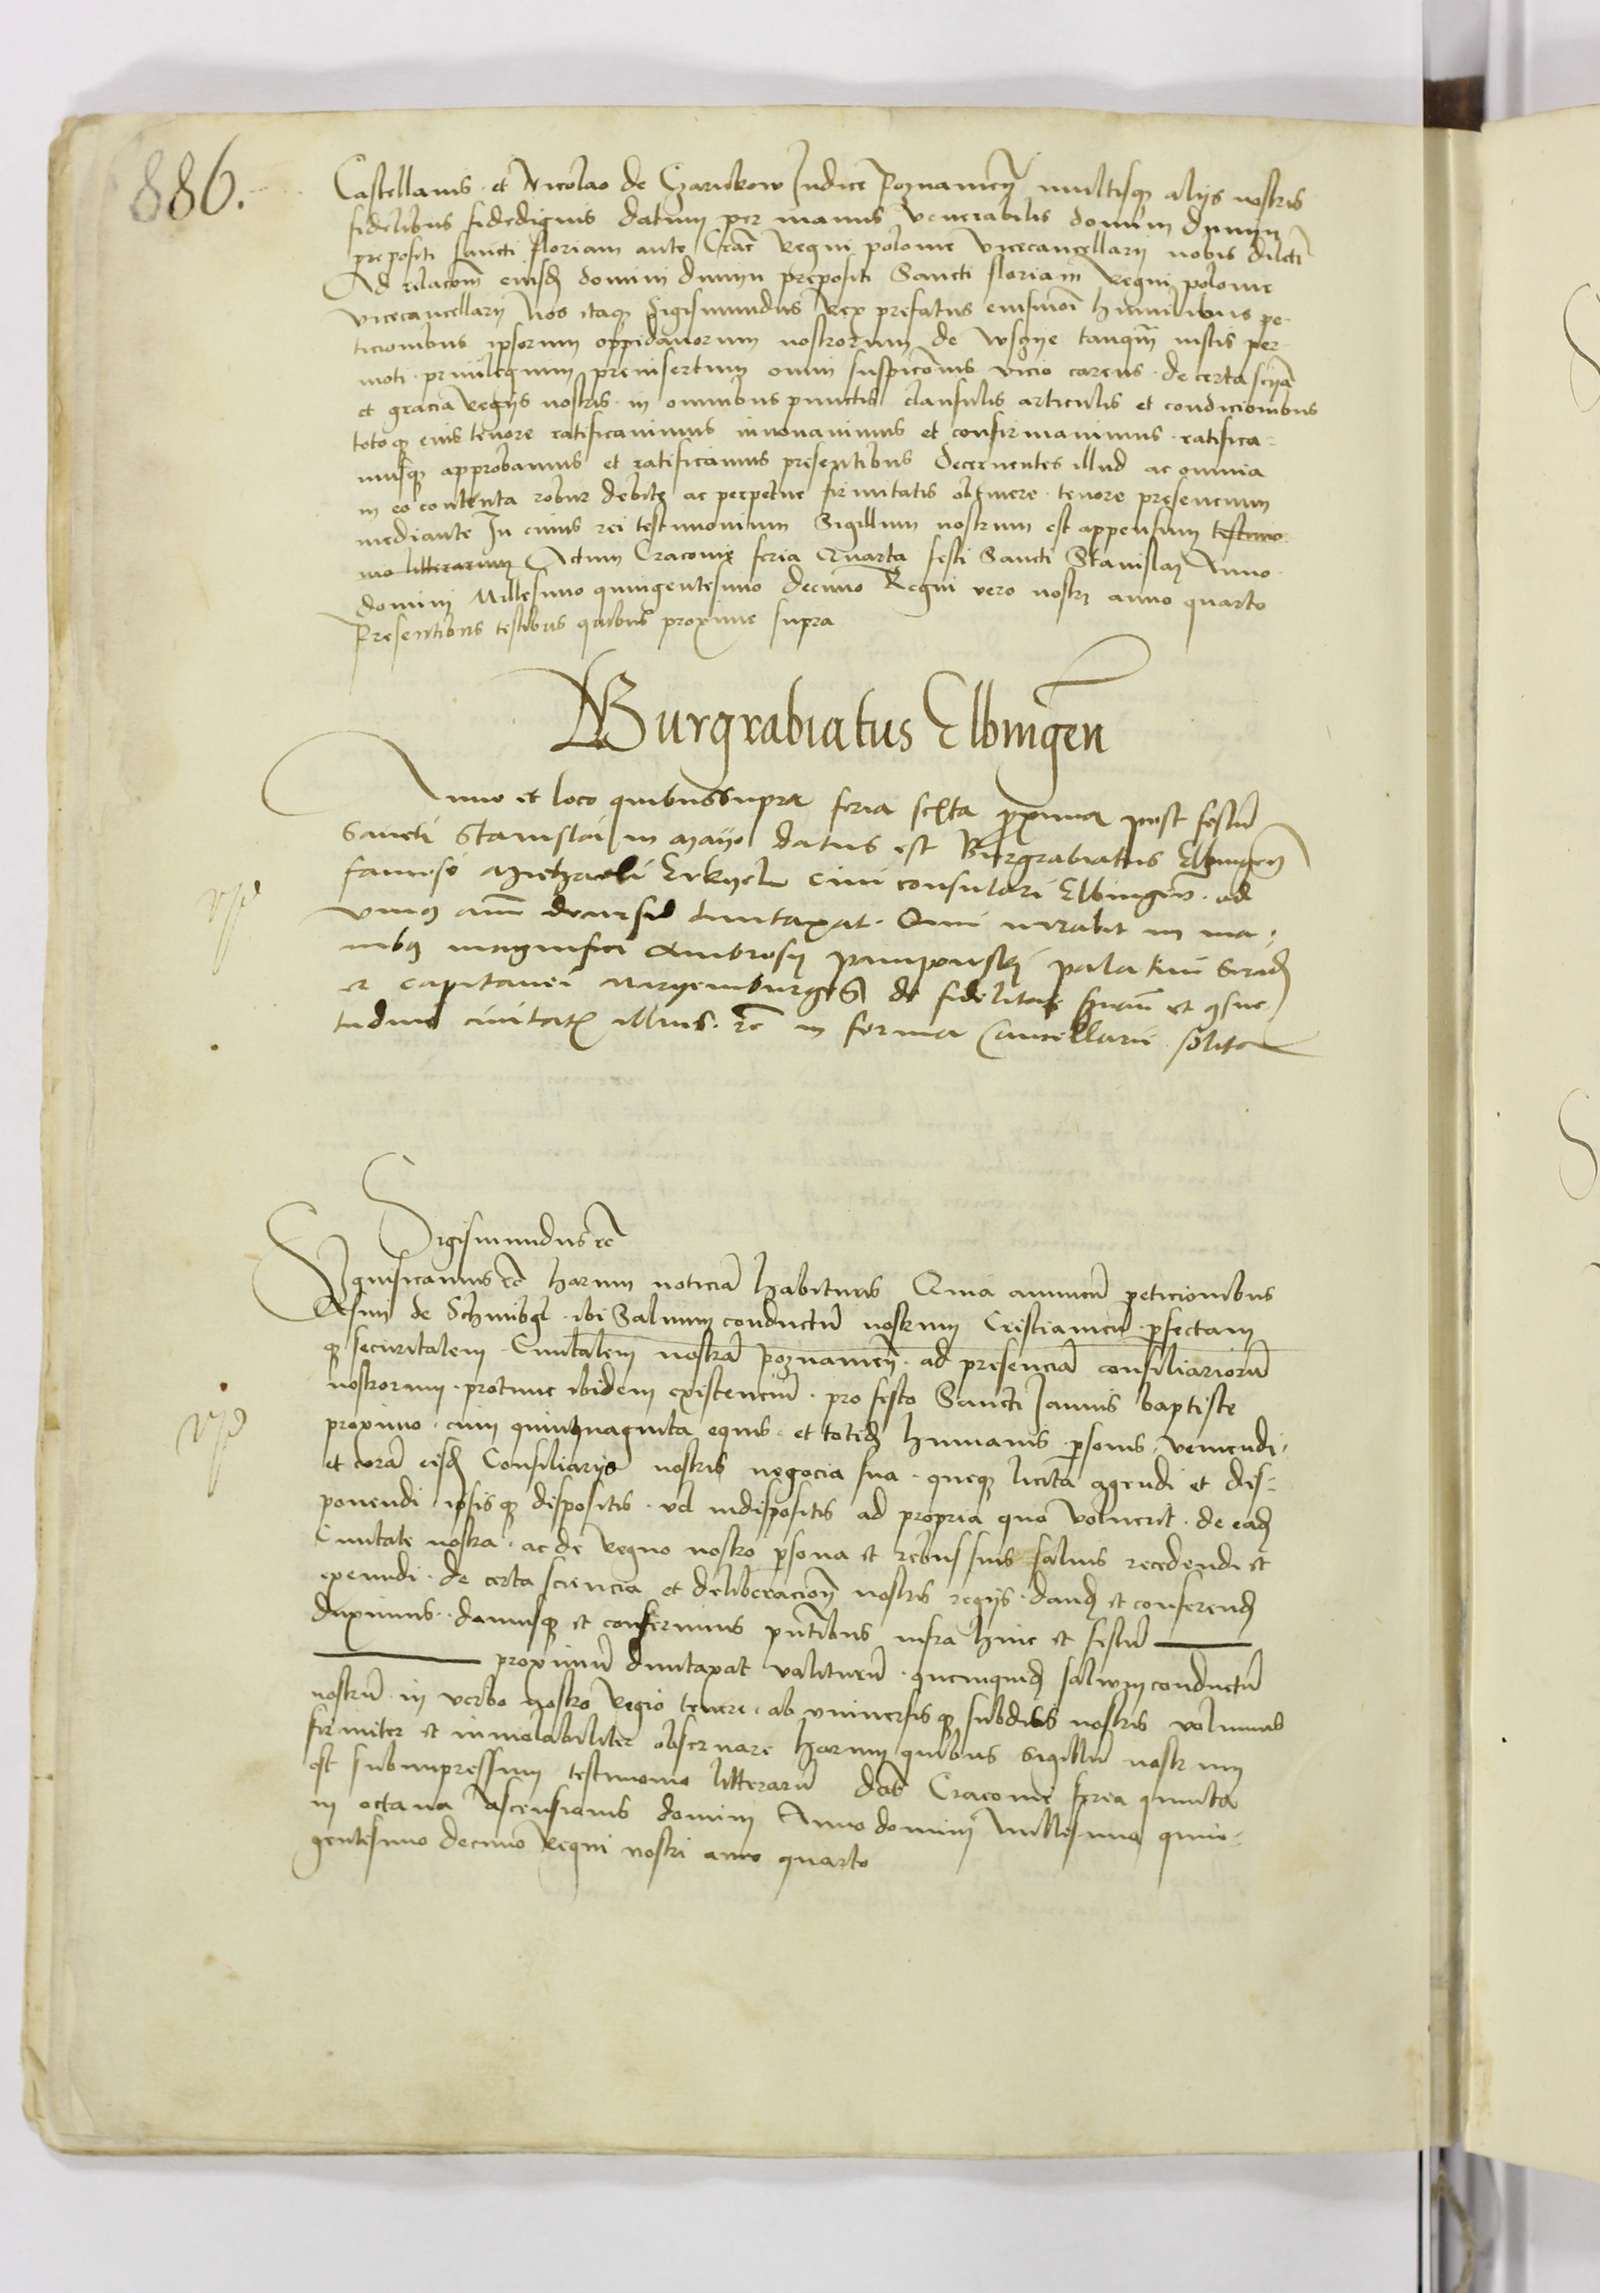 886.
Castellanis et Nicolao de Czarnkow Judice Poznanien multisque alijs nostris
fidelibus fidedignis datum per manus venerabilis domini
prepositi sancti floriani ante Crac Regni polonie vicecancellarij nobis dilecti
Ad relacom eiusd domini prepositi Sancti floriani Regni polonie
vicecancellarij Nos itaque Sigismundus Rex prefatus eiusmoi humilibus pe-
ticionibus ipsorum oppidanorum nostrorum de tanquam iustis per-
moti privilegium preinsertum omni suspiconis vicio carens de certa scia
et gracia Regijs nostris in omnibus punctis clausulis articulis et condicionibus
totoque eius tenore ratificavimus innovavimus et confirmavimus ratifica-
musque approbamus et ratificamus presentibus decernentes illud ac omnia
in eo contenta robur debite ac perpetue firmitatis obtinere tenore presencium
mediante In cuius rei testimonium Sigillum nostrum est appensum testimo-
nio litterarum Actum Cracovie feria Quarta festi Sancti Stanislai Anno
domini Millesimo quingentesimo decimo Regni vero nostri anno quarto
Presentibus testibus quibus proxime supra
Burgrabiatus Elbingen
Anno et loco quibussupra feria sexta proxima post festu
Sancti Stanislai in mayo datus est Burgrabiatus Elbingen
famoso Michaeli civi consulari Elbingen ad
unius anni decursu duntaxat Qui iurabit in ma-
nibus magnifici Ambrosij pampowski palatini Sirad
et capitanei Maryemburgen de fidelitate et consue-
tudine civitatis illius rc in forma Cancellarii solita
Sigismundus rc
Significamus rc harum noticia habituris Quia annuen peticionibus
de ibi Salvum conductu nostrum Cristianicu perfectam
que securitatem Civitatem nostra poznanien ad presencia consiliarioru
nostrorum protunc ibidem existenciu pro festo Sancti Joannis baptiste
proximo cum quinquaginta equis et totid humanis personis veniendi
et cora eisd Consiliarijs nostris negocia sua queque licita agendi et dis-
ponendi ipsisque dispositis vel indispositis ad propria quo voluerit de ead
Civitate nostra ac de Regno nostro persona et rebus suis salvis recedendi et
exeundi de certa sciencia et deliberacion nostris regijs dand et conferend
duximus damusque et conferimus pntibus infra hinc et festu
proximu duntaxat valituru quemquid salvumconductu
nostru in verbo nostro Regio tenere ab universisque subditis nostris volumus
firmiter et inviolabiliter observare harum quibus sigillu nostrum
est subimpressum testimonio litteraru dat Cracovie feria quinta
in octava Ascensionis domini Anno domini Millesimo quin-
gentesimo decimo Regni nostri anno quarto